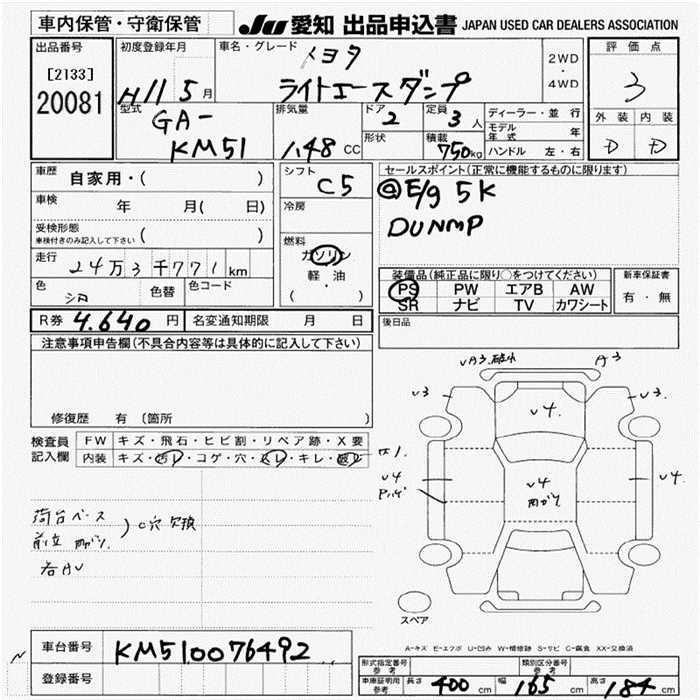 車内保管・守衛保管
JU 愛知 出品申込書 JAPAN USED CAR DEALERS ASSOCIATION
出品番号
[2133]
20081
初度登録年月
H11 5月
車名・グレード
トヨタ
ライトエースダンプ
2WD
・
4WD
評価点
3
型式
GA-
KM51
排気量
1.48 CC
ドア
2
形状
定員
3人
積載
750kg
ディーラー・並行
モデル年式 年
ハンドル 左・右
外装 内装
D D
車歴 自家用・( )
車検 年 月( 日)
受検形態
車検付きのみ記入して下さい ( )
走行 24万3千771km
色 シロ 色替 色コード
シフト
C5
冷房
燃料
ガソリン
軽・油
( ・ )
セールスポイント(正常に機能するものに限ります)
@E/g 5K
DUNMP
装備品(純正品に限り○をつけてください)
PS PW エアB AW
SR ナビ TV カワシート
新車保証書
有・無
後日品
R券 4.640 円 名変通知期限 月 日
注意事項申告欄(不具合内容等は具体的に記入して下さい)
修復歴 有 〔箇所 〕
検査員
記入欄
FW キズ・飛石・ヒビ割・リペア跡・X要
内装 キズ・汚レ・コゲ・穴・スレ・キレ・破レ
荷台ベース
C穴 欠損
A3
v3
v3
v4
v4
v4
v4
スペア
A-キズ E-エクボ U-凹み W-補修跡 S-サビ C-腐食 XX-交換済
車台番号 KM510076492
登録番号
型式指定番号
参考
類別区分番号
参考
車庫証明用
参考
長さ 400 cm 幅 165 cm 高さ 184 cm